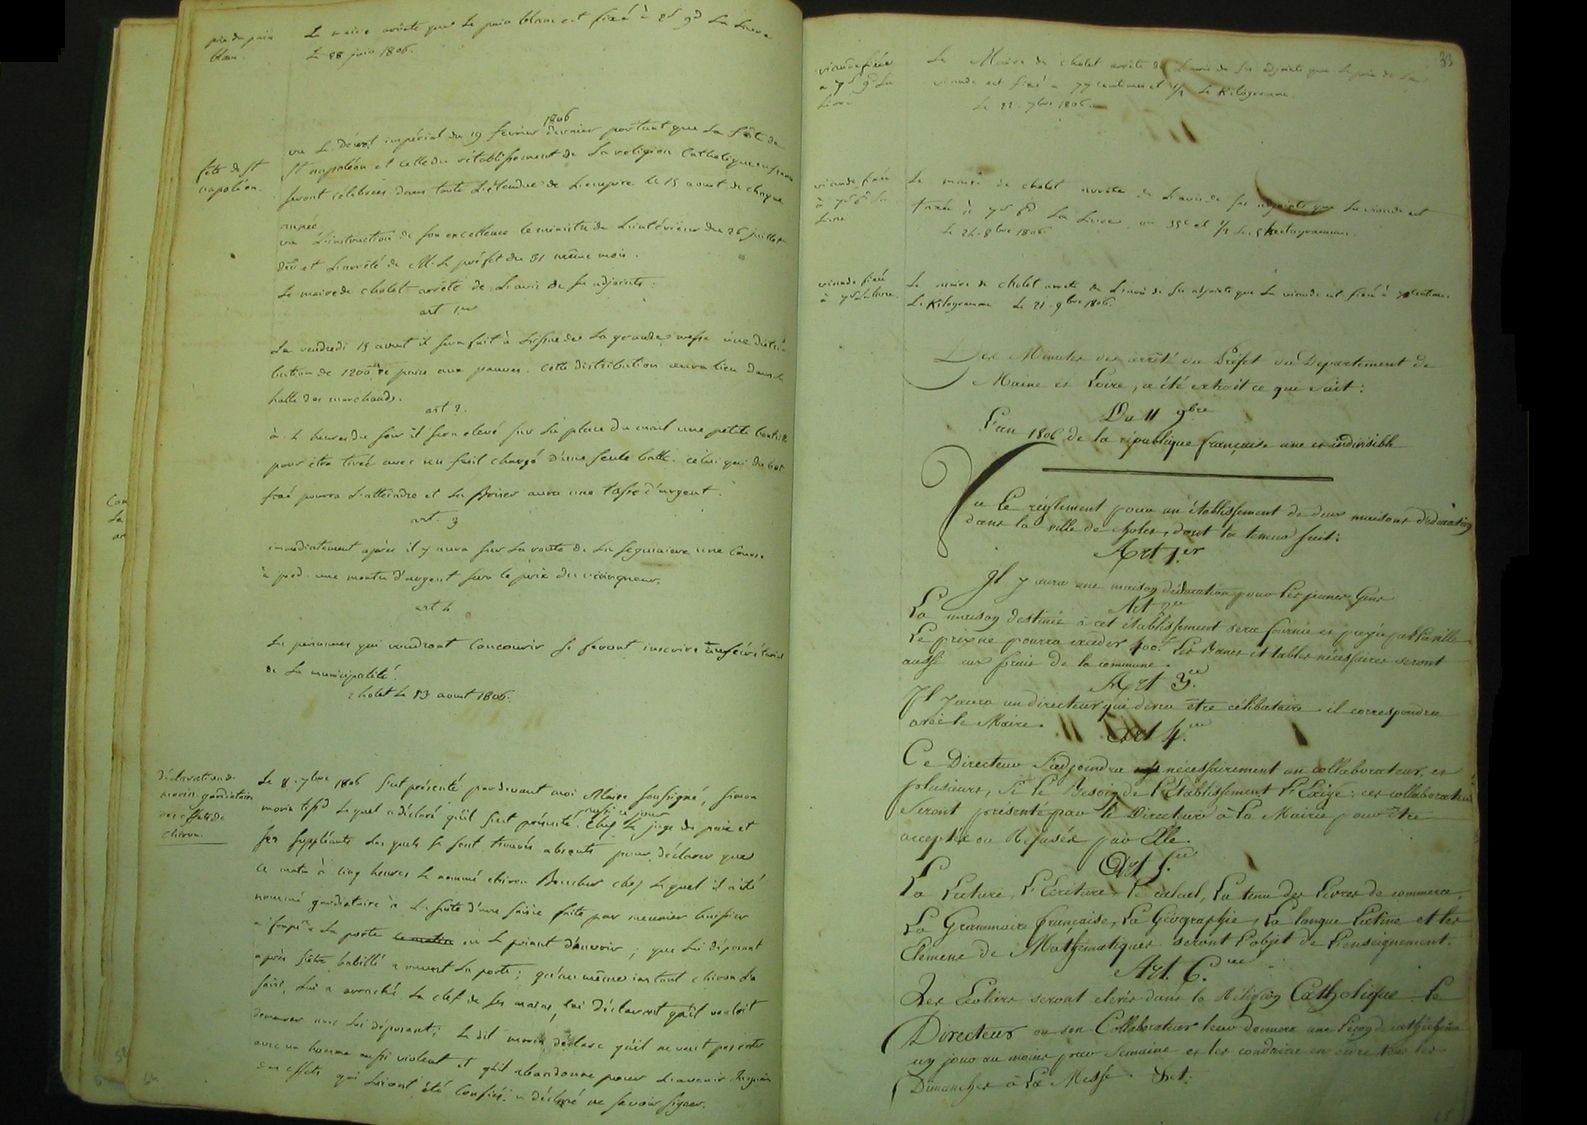 prix du pain
blanc.
Le maire arrête que le pain blanc est fixé à 2s 9d la Livre
Le 28 juin 1806.
fête de St
napoléon.
1806
vu Le Décret impérial du 19 fevrier dernier portant que La fête de
St napoléon et celle du rétablissement de La religion Catholique en france
seront célébrées dans toute L'étendue de L'empire le 15 aout de chaque
année
vu L'instruction de son excellence le ministre de L'intérieur du 26 juillet
der et L'arrêté de M. le préfet du 31 même mois.
Le maire de cholet arrête de L'avis de ses adjoints:
art 1er
Le vendredi 15 aout il sera fait à L'issue de La grande messe une distri-
bution de 1200 de pain aux pauvres. Cette distribution aura lieu dans la
halle des marchands.
art 2.
à 4 heures du soir il sera elevé sur La place du mail une petite
pour être tirée avec un fusil chargé d'une seule balle. celui qui du but
fixé pourra L'atteindre et La briser aura une tasse d'argent.
art. 3
immédiatement après il y aura sur La route de La Seguiniere une Course
à pied. une montre d'argent sera le prix du vainqueur.
art 4
Les personnes qui voudront concourir se feront inscrire au secrétariat
de La municipalité.
cholet Le 13 aout 1806.
déclaration de
morin gardiataire
des effets de
chiron.
Le 8. 7bre 1806 s'est présenté pardevant moi Maire soussigné, simon
morin tissd Lequel a déclaré qu'il s'est présenté aussi ce jour chez Le juge de paix et
ses suppléants Lesquels se sont trouvés absents pour déclarer que
ce matin à cinq heures Le nommé chiron Boucher chez Lequel il a été
nommé gardiataire à La suite d'une saisie faite par meunier huissier
a frapé à La porte ce matin en Le priant d'ouvrir; que Lui déposant
après s'être habillé a ouvert La porte; qu'au même instant chiron La
saisi, Lui a arraché La clef de ses mains, Lui déclarant qu'il vouloit
demeurer avec Lui déposant; Le dit morin déclare qu'il ne veut pas rester
avec un homme aussi violent et qu'il abandonne pour L'avenir
des effets qui Lui ont été Confiés. a déclaré ne savoir signer.
33
viande fixée
a 7s 9d La
Livre
Le Maire de cholet arrête de L'avis de ses adjoints que Le prix de La
viande est fixé a 77 centimes et 1/2 Le Kilogramme.
Le 22. 7bre 1806.
viande fixée
à 7s 6d La
Livre
Le maire de cholet arrête de L'avis de ses adjoints que La viande est
taxée à 7s 6d La Livre ou et 1/2 Le Kilogramme.
Le 24. 8bre 1806
viande fixée
à 7s La Livre.
Le maire de cholet arrete de L'avis de ses adjoints que La viande est fixée à 70 centimes
Le Kilogramme Le 21. 9bre 1806.
Des Minutes des arrêté du Préfet du Département de
Maine et Loire, a été extrait ce qui suit:
Du 11 9bre
L'an 1806 de la république française une et indivisible
Vu Le règlement pour un établissement de deux maisons d'éducation
dans la ville de Cholet, dont la teneur suit:
Art 1er
Il y aura une maison d'éducation pour les jeunes Gens
Art 2e
La maison destinée à cet établissement sera fournie et payée par La ville
Le prix ne pourra excéder 400f Les Bancs et tables nécessaires seront
aussi aux frais de la commune.
Art 3e
Il y aura un directeur qui devra être célibataire. il correspondra
avec le Maire.
Art 4e
Ce Directeur s'adjoindra nécessairement un collaborateur, et
plusieurs, si le Besoin de l'Etablissement l'Exige: ces collaborateurs
seront présenté par le Directeur à La Mairie pour être
acceptés ou Refusés par Elle.
Art 5e
La Lecture, L'Ecriture, le calcul, La tenue des Livres de commerce,
La Grammaire française, La Géographie, La langue Latine et les
Elémens de Mathématiques seront l'objet de l'enseignement.
Art. 6e
Les Ecoliers seront elevés dans la Religion Catholique. le
Directeur ou son Collaborateur leur donnera une Leçon de catéchisme
un jour au moins par semaine et les conduira en outre tous les
Dimanches à La Messe.